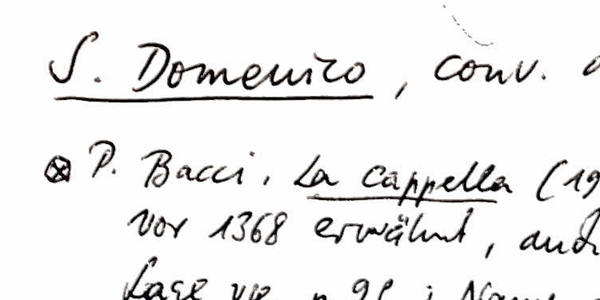 S. Domenico, conv.
⊗ P. Bacci, La Cappella (19
vor 1368 erwähnt, auch
Lage